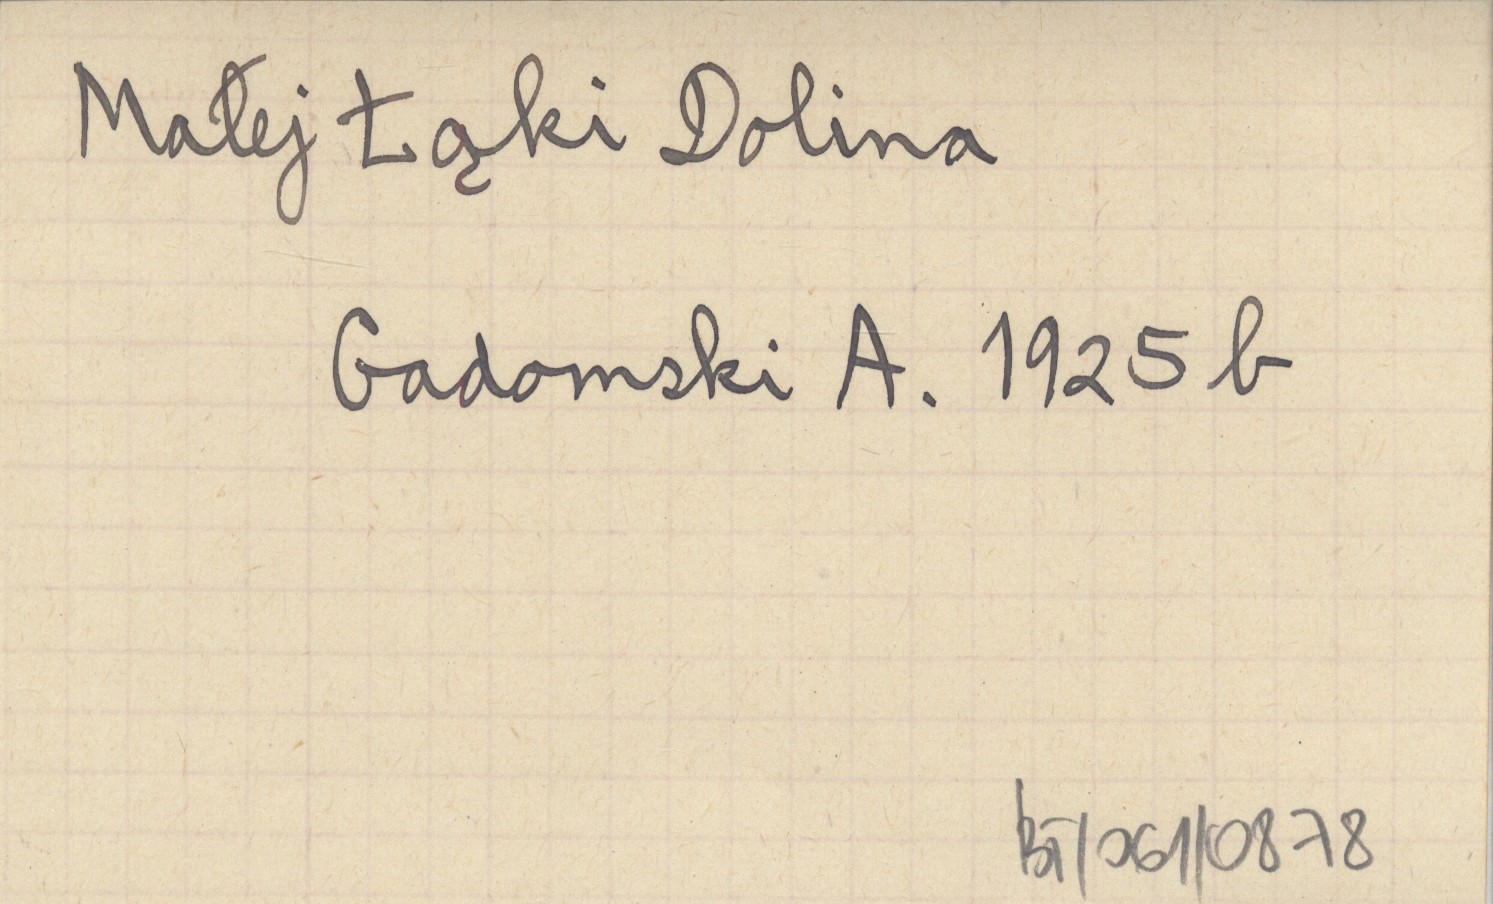 Małej Łąki Dolina
Gadomski A. 1925 b
BT/061/0878